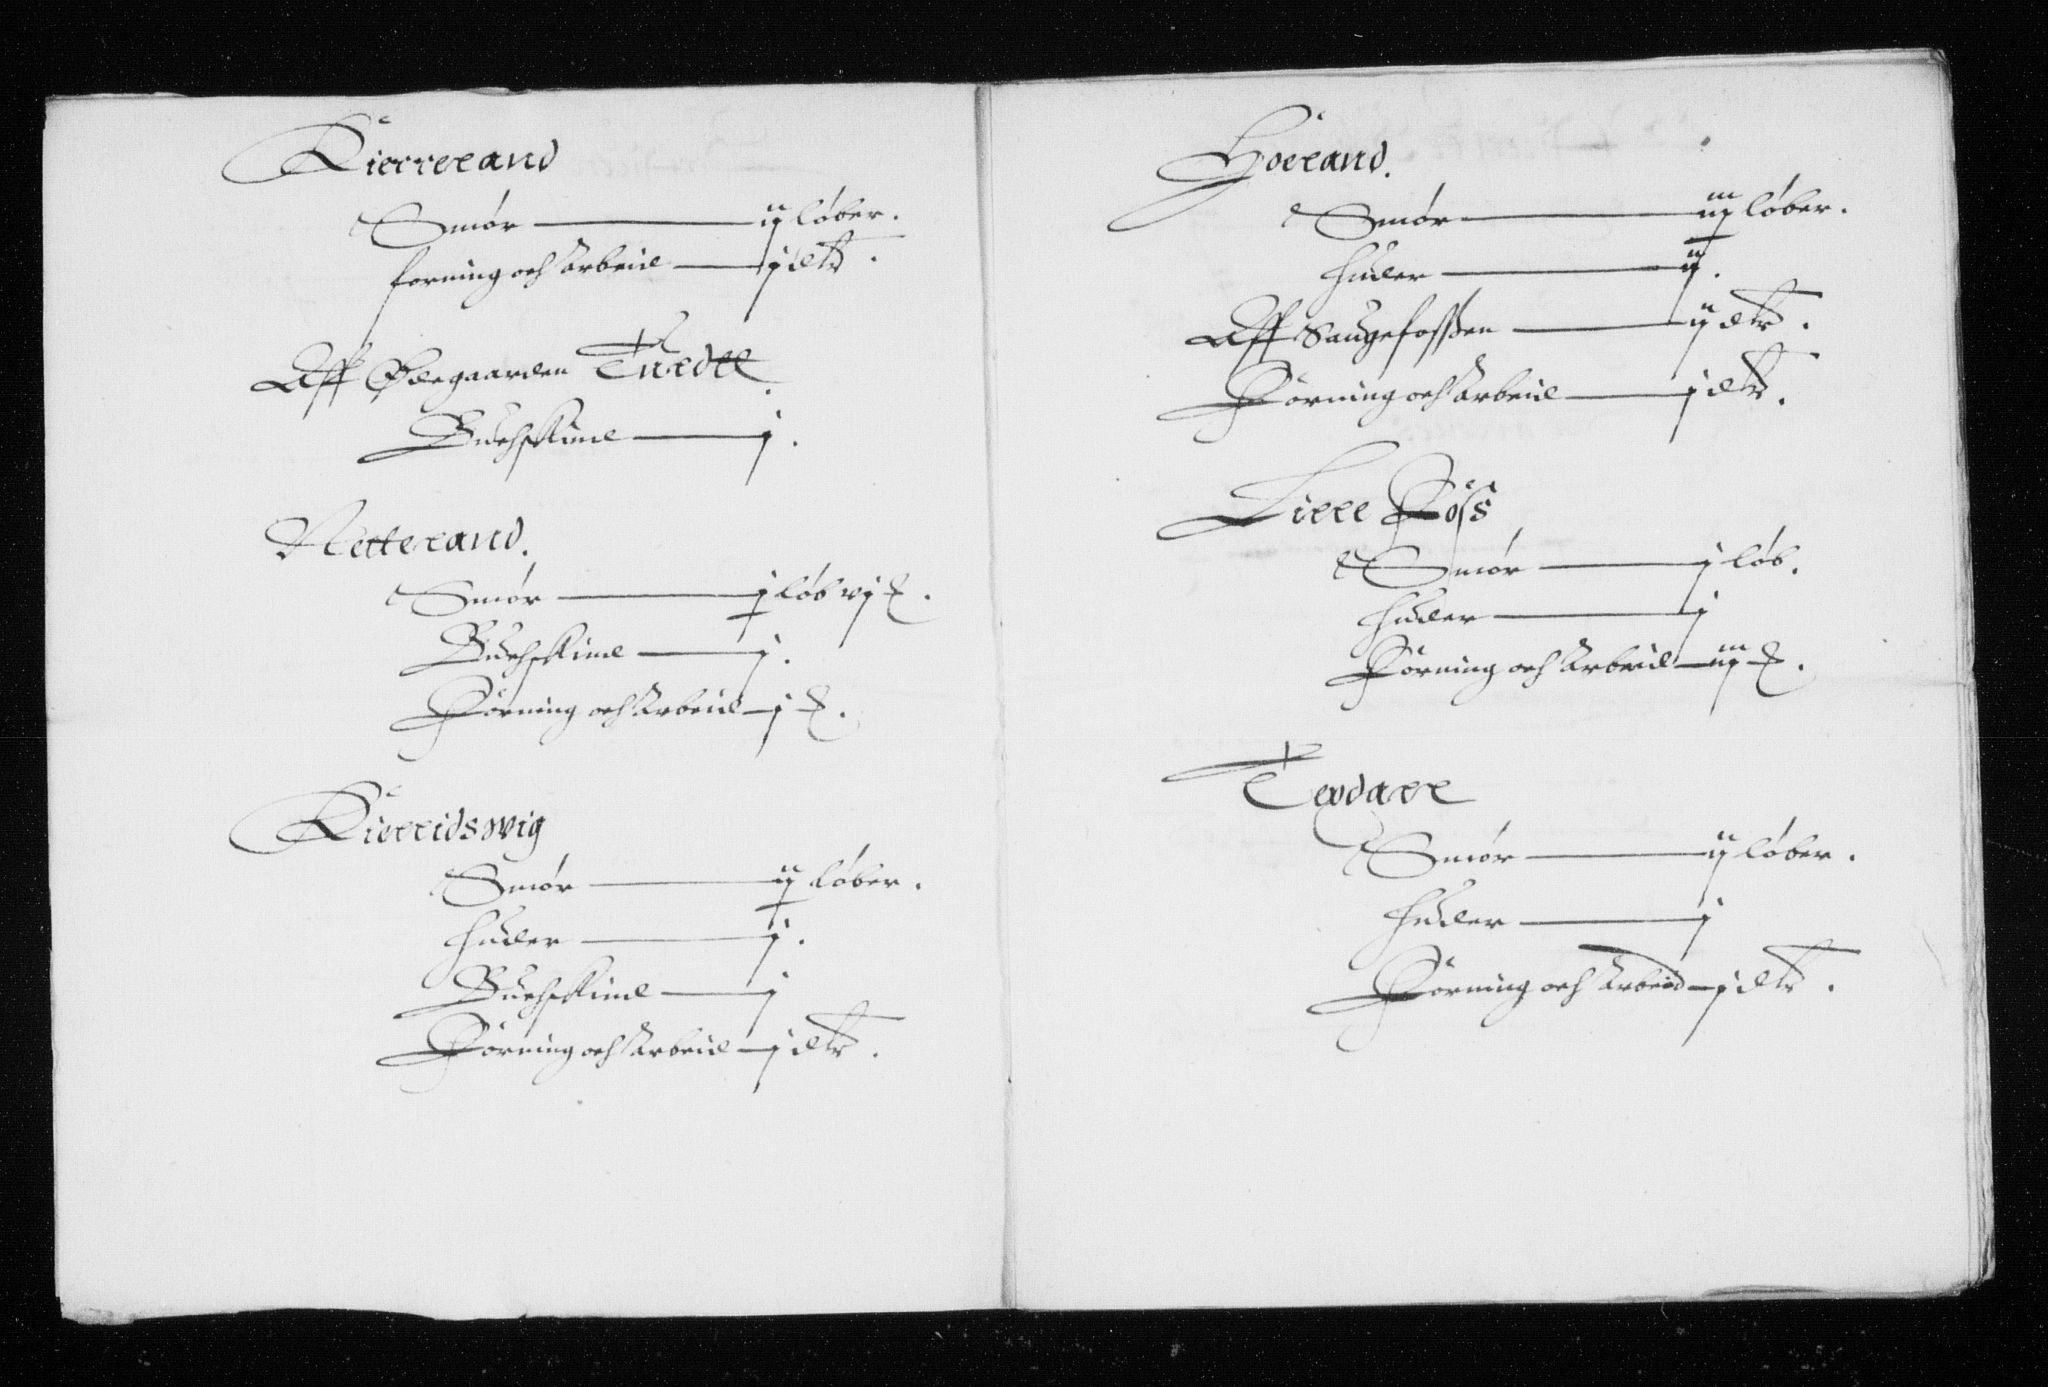 Kielleland
Smør — ij løber.
forning och Arbeid — j dlr.
Aff Ødegaarden Tuedtt
Buchskind — j.
Netteland.
Smør — j løb vj ℔.
Buchskind — j.
Förning och Arbeid — j ℔.
Kiellidswig
Smør — ij løber.
Huder — j.
Buchskind — j
Förning och Arbeid — j dlr.
Høeland.
Smør — iiij løber.
Huder — ij.
Aff Saugefossen — ij dlr.
Förning och Arbeid — j dlr.
Lille Föss
Smør — j løb.
Huder — j
Förning och Arbeid — iiij ℔.
Smør — ij løber.
Huder — j
Förning och Arbeid — j dlr.